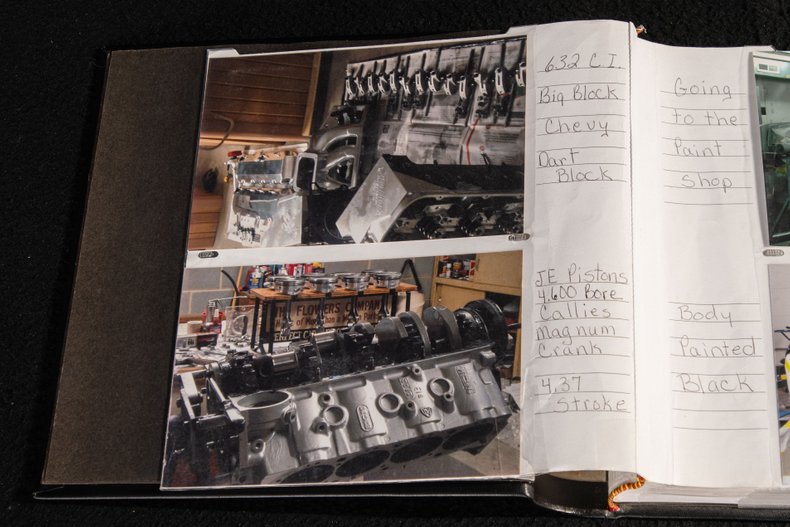 632 C.I.
Big Block
Chevy
Dart
Block
JE Pistons
4.600 Bore
Callies
Magnum
Crank
4.37
Stroke
FLOWERS COMPANY
Going
to the
Paint
Shop
Body
Painted
Black